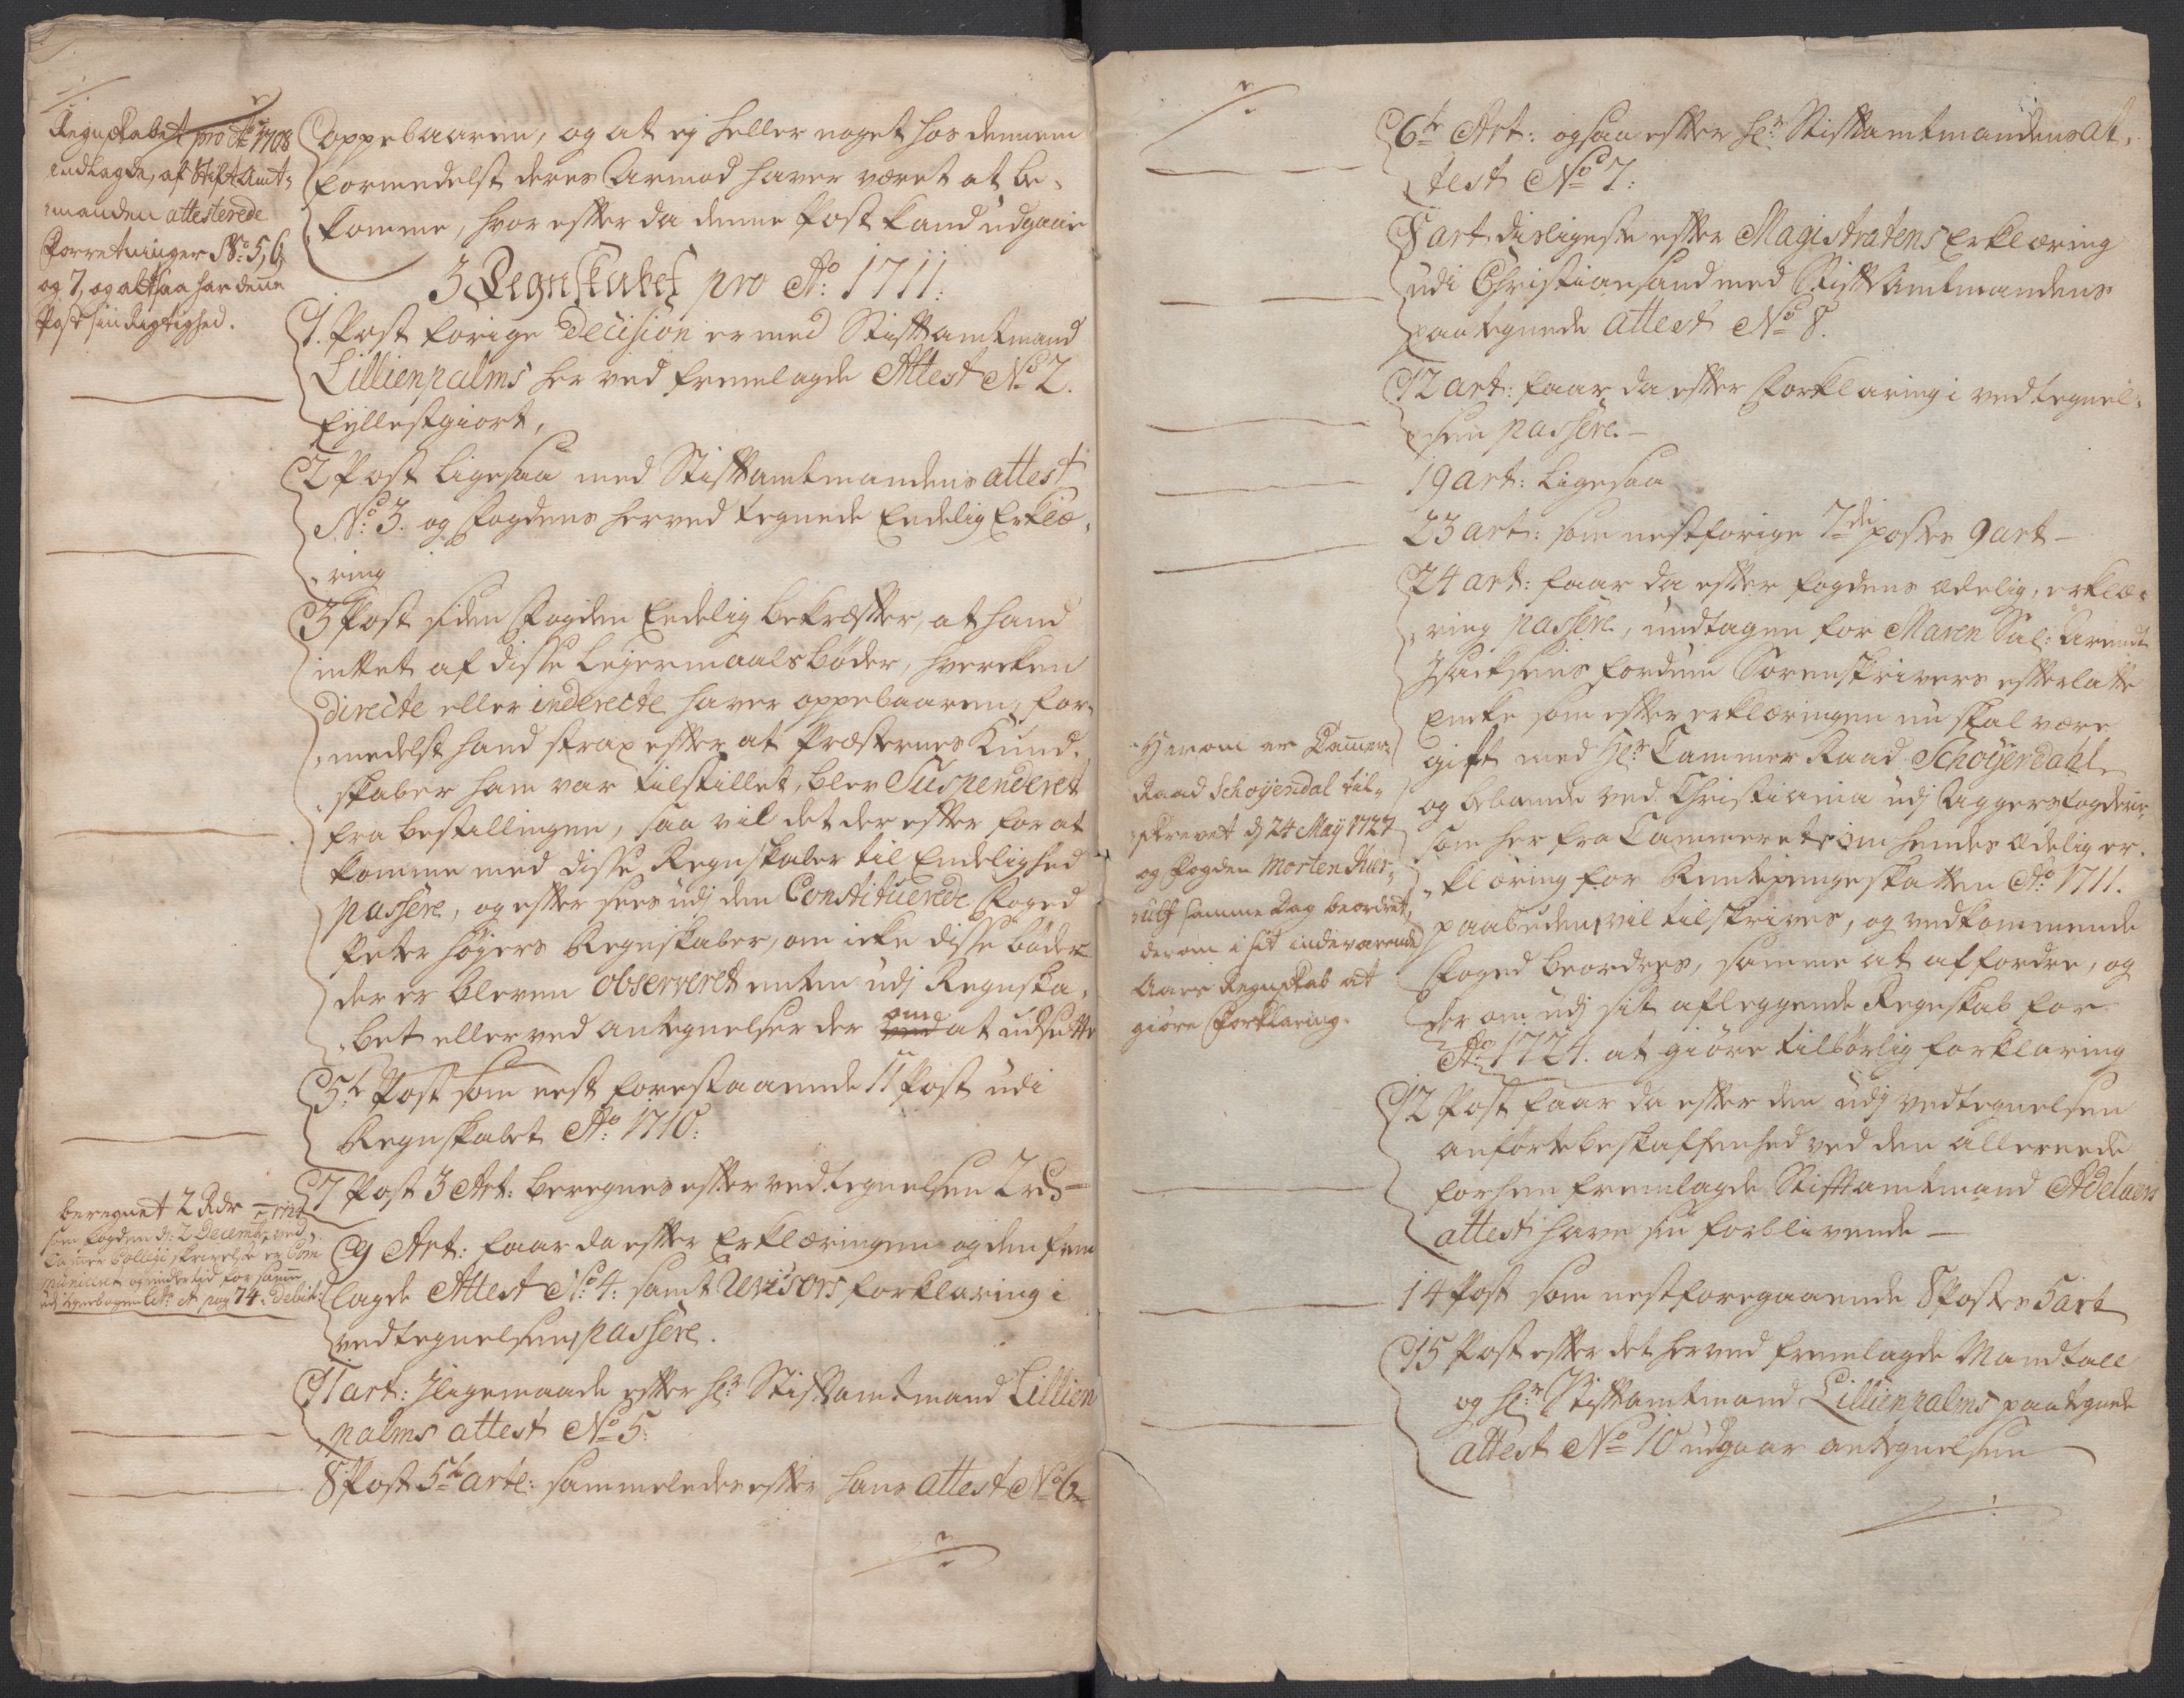 Regnskabet pro Ao 1708
indlagde, af Stift Amt-
manden attesterede
Forretninger No: 5, 6
og 7, og altsaa har denne
Post sin Rigtighed.
oppebaaren, og at ej heller noget hos dennem
formedelst deres Armod haver været at be-
komme, hvor effter da denne Post kand udgaae
3 Regnskabet pro Ao: 1711:
1. Post forige Decision er med Stifftamtmand
Lillienpalms her ved fremlagde Attest No 2.
fyllestgiort,
2 Post ligesaa med Stifftamtmandens attest
No: 3. og Fogdens herved tegnede Eedelig Erklæ-
ring
3 Post siden Fogden Eedelig bekræffter, at hand
inttet af disse Lejermaals bøder, hvercken
directe eller inderecte haver oppebaaren, for-
medelst hand strax effter at Præsternes Kund-
skaber ham var tilstillet, blev Suspenderet
fra bestillingen, saa vil det der effter for at
komme med disse Regnskaber til Endelighed
passere, og effter sees udj den Constituerede Foged
Peter Høyers Regnskaber, om icke disse bøder
der er bleven observeret enten udj Regnska-
bet eller ved antegnelser der om at udsette
5te Post som nest forestaaende 11 Post udi
Regnskabet Ao: 1710:
7 Post 3 Art: beregnes effter vedtegnelsen 2 rd
beregnet 2 Rdr
som Fogden d: 2 Decembr ved
Cammer Collegii skrivelse er Com-
municeret og indertid for samme
udj bogen litr: A pag 74: Debit:
9 Art: faar da effter Erklæringen og den frem
lagde Attest No: 4: samt Revisors forklaring i
vedtegnelsen passere.
11 art: Jligemaade effter Hr: Stifftamtmand Lillien
palms attest No 5:
8 Post 5te artl: sammeledes effter hans attest No 6
6te Art: ogsaa effter Hr: Stifftamtmandens at-
test No 7:
8 art disligeste effter Magistratens Erklæring
udi Christiansand med Stifft Amtmandens
paategnede attest No 8.
12 art: faar da effter Forklaring i vedtegnel-
sen passere. -
19 art: Ligesaa
23 art: som nestforige 7de postes 9 art -
24 art: faar da effter fogdens ædelig, erklæ-
ring passere, undtagen for Maren Sal: Arendt
Isachsens fordum Sorenskrivers effterlatte
Encke som effter erklæringen nu skal være
gift med Hr: Cammer Raad Schøyendahl
og boende ved Christiania udj Aggers fogderie,
som her fra Cammeret om hendes ædelig er-
klæring for Rentepengeskatten Ao: 1711.
paabuden, vil tilskrives, og vedkommende
Foged beordres, samme at affordre, og
der om udj sit afleggende Regnskab for
Ao: 1724. at giøre tilbørlig forklaring
Herom er Cammer-
Raad Schøyendal til-
skrevet d 24 May 1727
og Fogden Morten
samme Dag beordret,
derom i sit indeværende
Aars Regnskab at
giøre Forklaring.
12 Post faar da effter den udj vedtegnelsen
anførte beskaffenhed ved den allerede
forhen fremlagde Stifftamtmand Adelaers
attest have sin forblivende -
14 Post som nestforegaaende 8 Postes 5 art
15 Post effter det herved fremlagde Mandtall
og Hr: Stifftamtmand Lillienpalms paategnede
attest No 10 udgaar antegnelsen